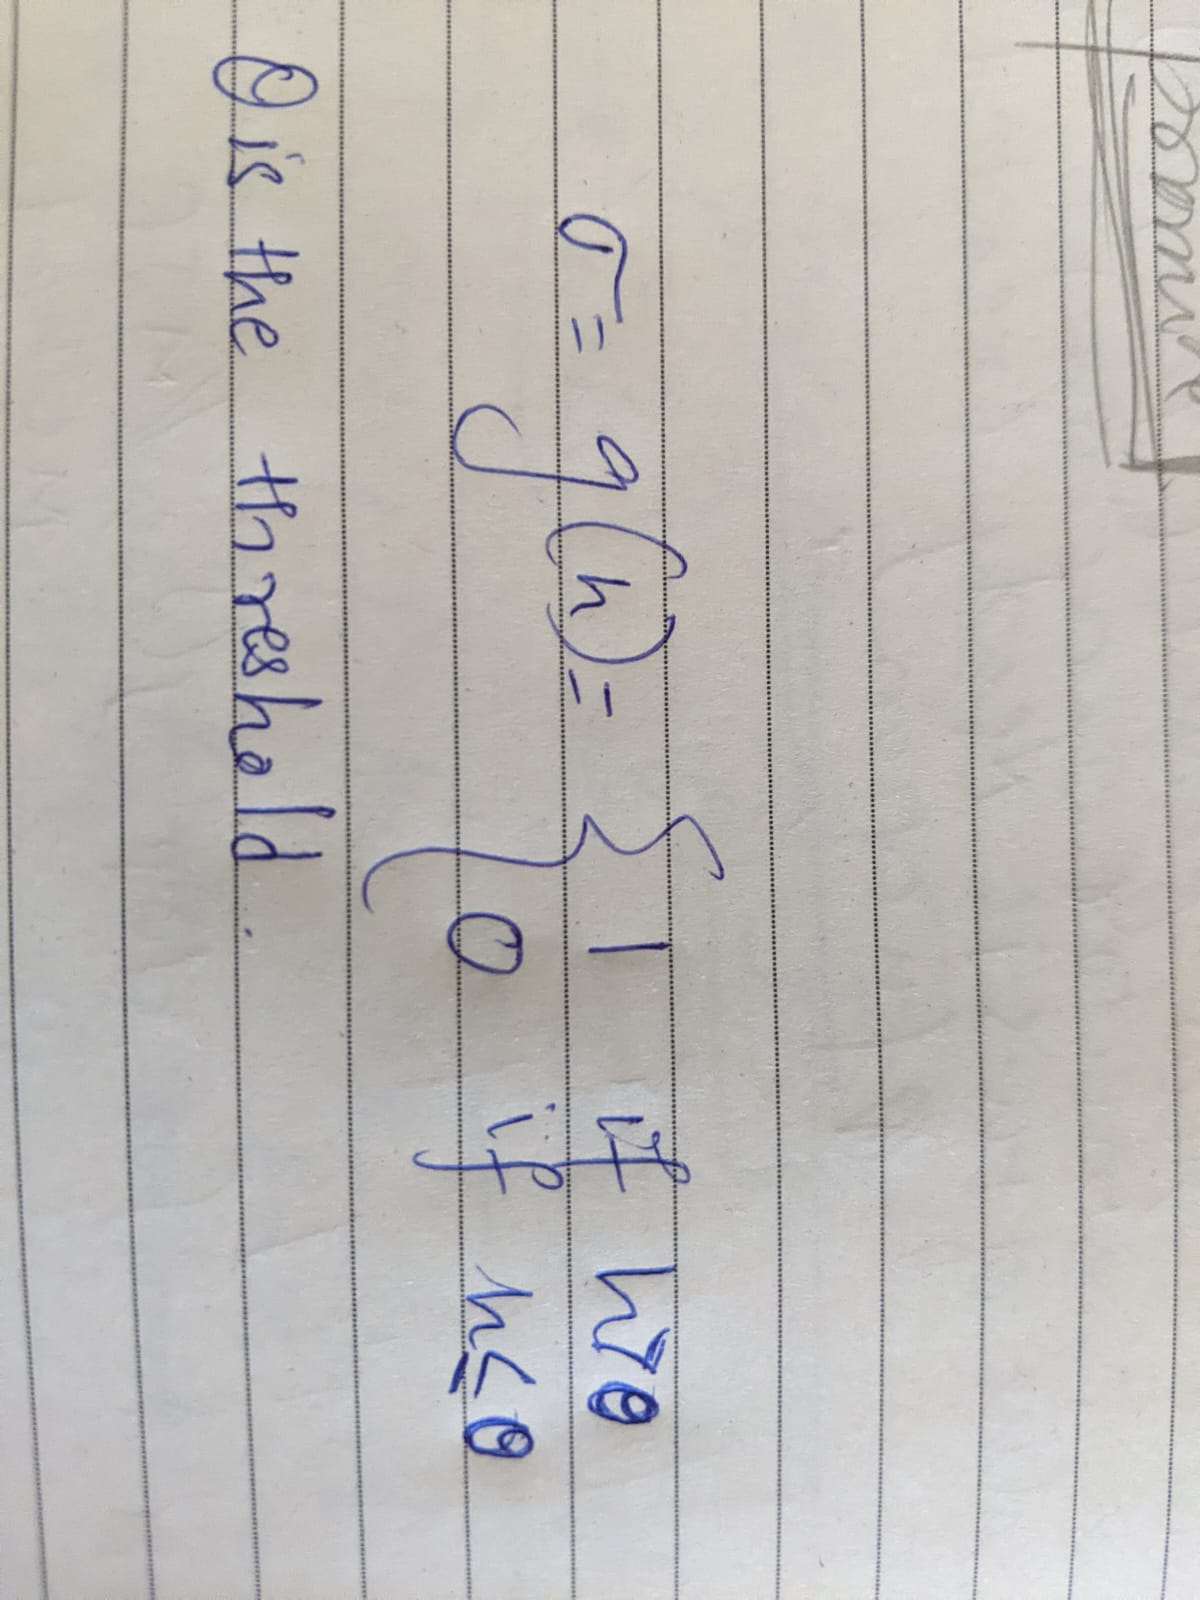 σ = g(h) = { 1 if h>θ
0 if h≤θ
θ is the threshold.